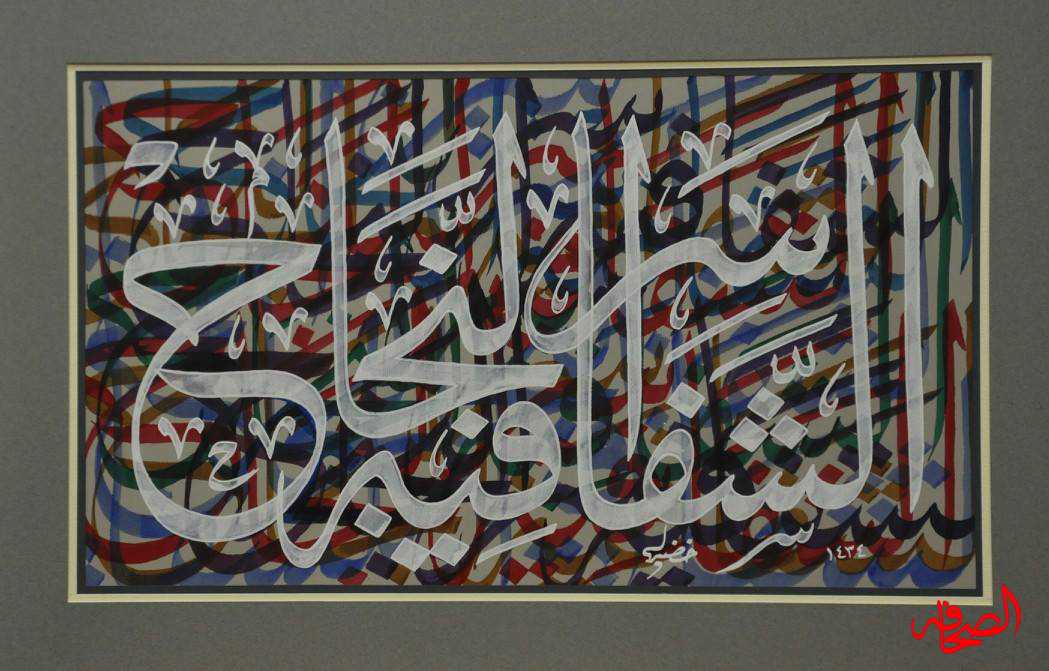 الشفافية سر النجاح
١٤٣٤
الصحافة